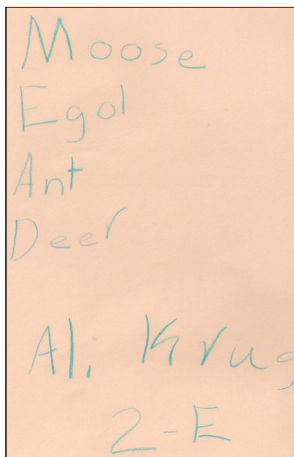 Moose
Egol
Ant
Deer
Al. Krug
2-E